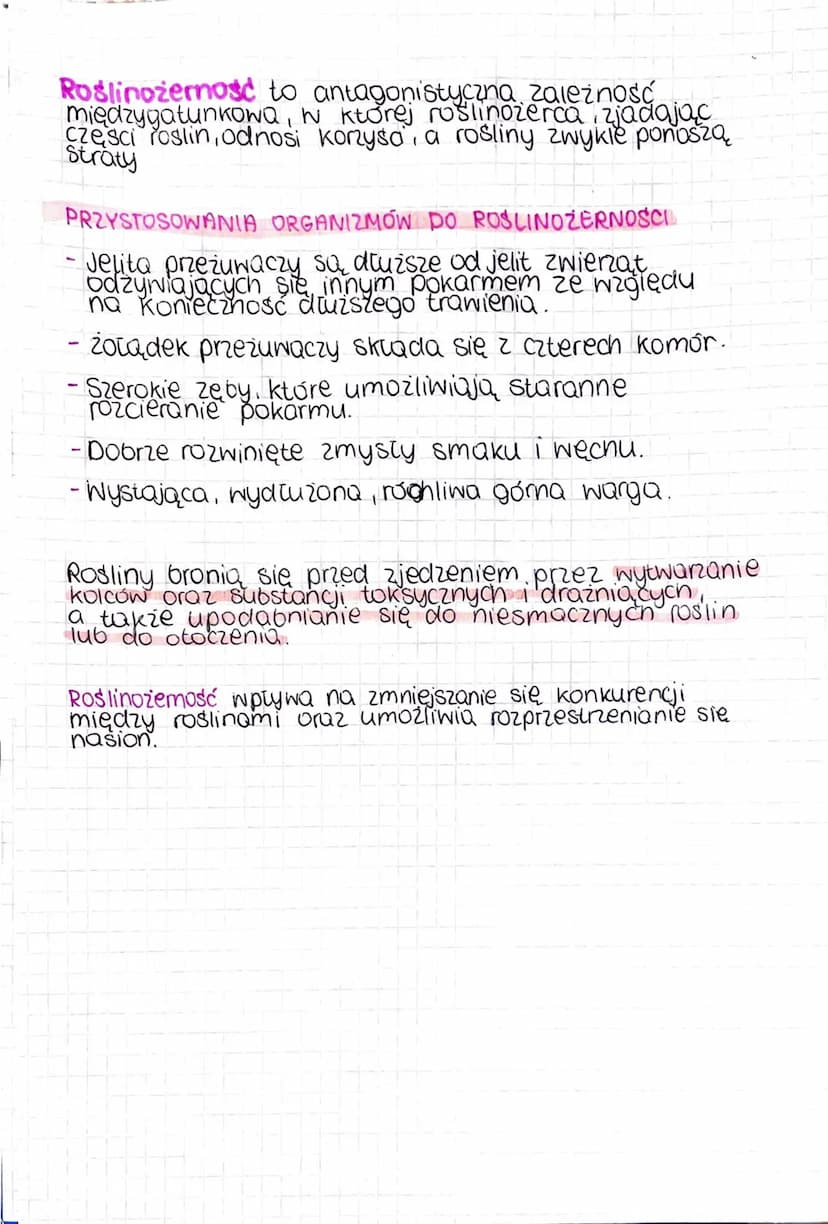 Roślinożerność to antagonistyczna zależność
międzygatunkowa, w której roślinożerca, zjadając
części roślin, odnosi korzyść, a rośliny zwykle ponoszą
straty
PRZYSTOSOWANIA ORGANIZMÓW DO ROŚLINOŻERNOŚCI
- Jelita przeżuwaczy są dłuższe od jelit zwierząt
odżywiających się innym pokarmem ze względu
na konieczność dłuższego trawienia.
- żołądek przeżuwaczy składa się z czterech komór.
- Szerokie zęby, które umożliwiają staranne
rozcieranie pokarmu.
- Dobrze rozwinięte zmysły smaku i węchu.
- Wystająca, wydłużona, ruchliwa górna warga.
Rośliny bronią się przed zjedzeniem, przez wytwarzanie
kolców oraz substancji toksycznych i drażniących,
a także upodabnianie się do niesmacznych roślin
lub do otoczenia.
Roślinożerność wpływa na zmniejszanie się konkurencji
między roślinami oraz umożliwia rozprzestrzenianie się
nasion.